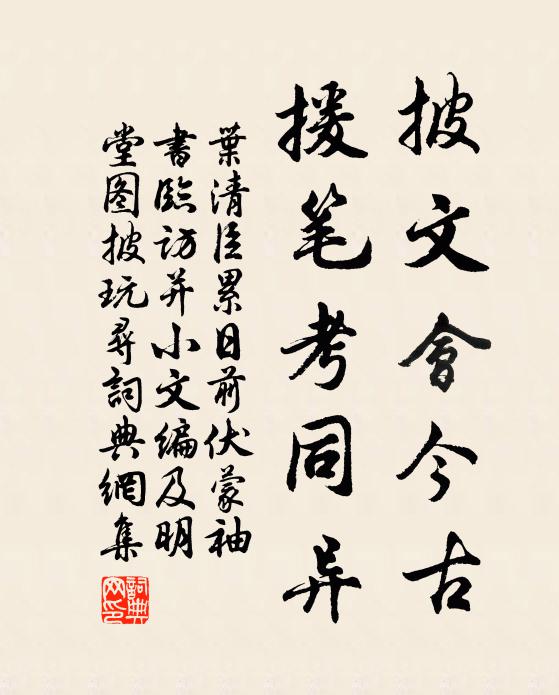 披文會今古
援笔考同异
葉清臣累日前伏蒙袖
書臨访并小文编及明
堂图披玩尋詞典網集
詞典网印